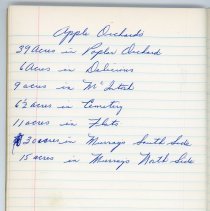 Apple Orchards
39 acres in Poplar Orchard
6 acres in Delicious
9 acres in McIntosh
6½ acres in Cemetery
11 acres in Flats
30 acres in Murrays South Side
15 acres in Murrays North Side